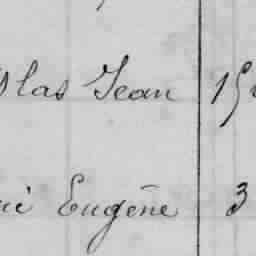 las Jean 15
Eugène 3